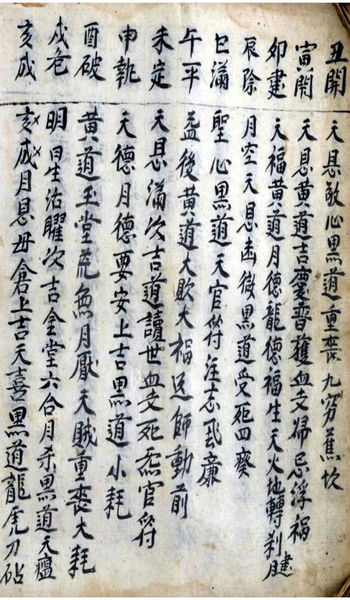 丑開 天恩敬心黑道重喪九穷蕉坎
寅閉 天恩黄道吉慶普護血支婦忌浮禍
卯建 天福黄道月德龍德福生天火地轉刹
辰除 月空天恩幽微黑道受死四癈
巳滿 聖心黑道天官符注志飛廉
午平 益後黄道大敗大禍送師動前
未定 天恩滿次吉道讀世血支死炁官符
申執 天德月德要安上吉黑道小耗
酉破 黄道玉堂荒無月厭天賊重喪大耗
戌危 明星活曜次吉金堂六合月杀黑道天瘟
亥成 亥成月恩母倉上吉天喜黑道龍虎刀砧